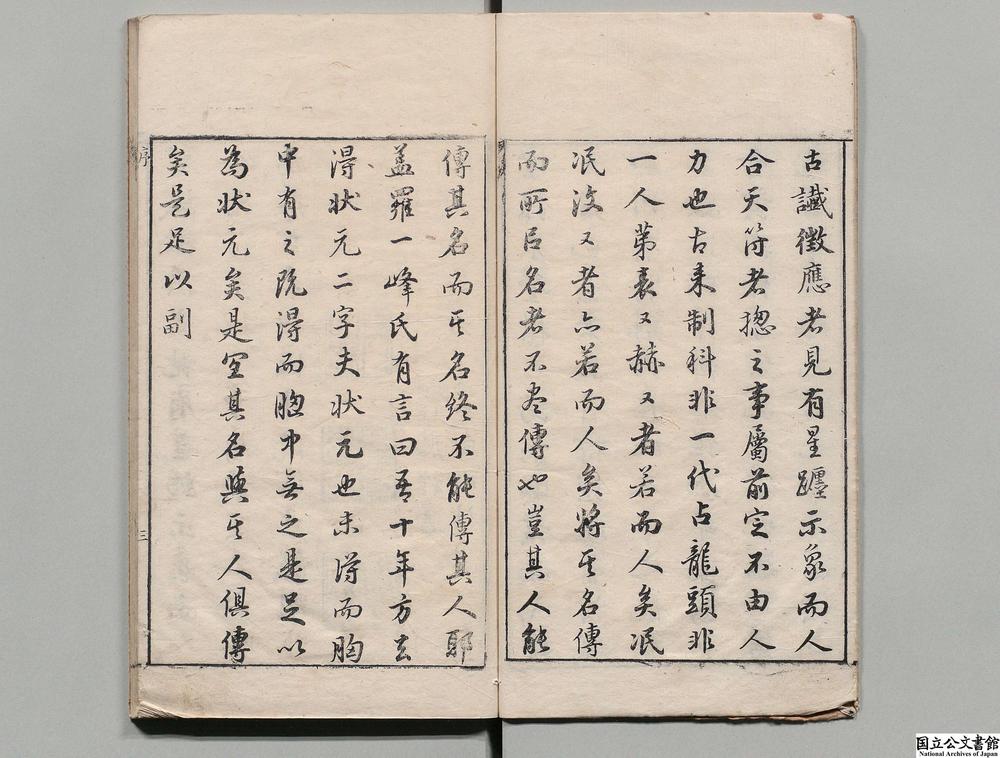 古讖徵應者見有星躔示象而人
合天符者揔之事屬前定不由人
力也古来制科非一代占龍頭非
一人第表又赫又者若而人矣泯
泯没又者亦若而人矣將其名傳
而所以名者不尽傳也豈其人能
傳其名而其名終不能傳其人耶
盖羅一峰氏有言曰吾十年方去
得状元二字夫状元也未得而胸
中有之既得而胸中無之是足以
為状元矣是宜其名與其人俱傳
矣是足以副
序
三
国立公文書館
National Archives of Japan